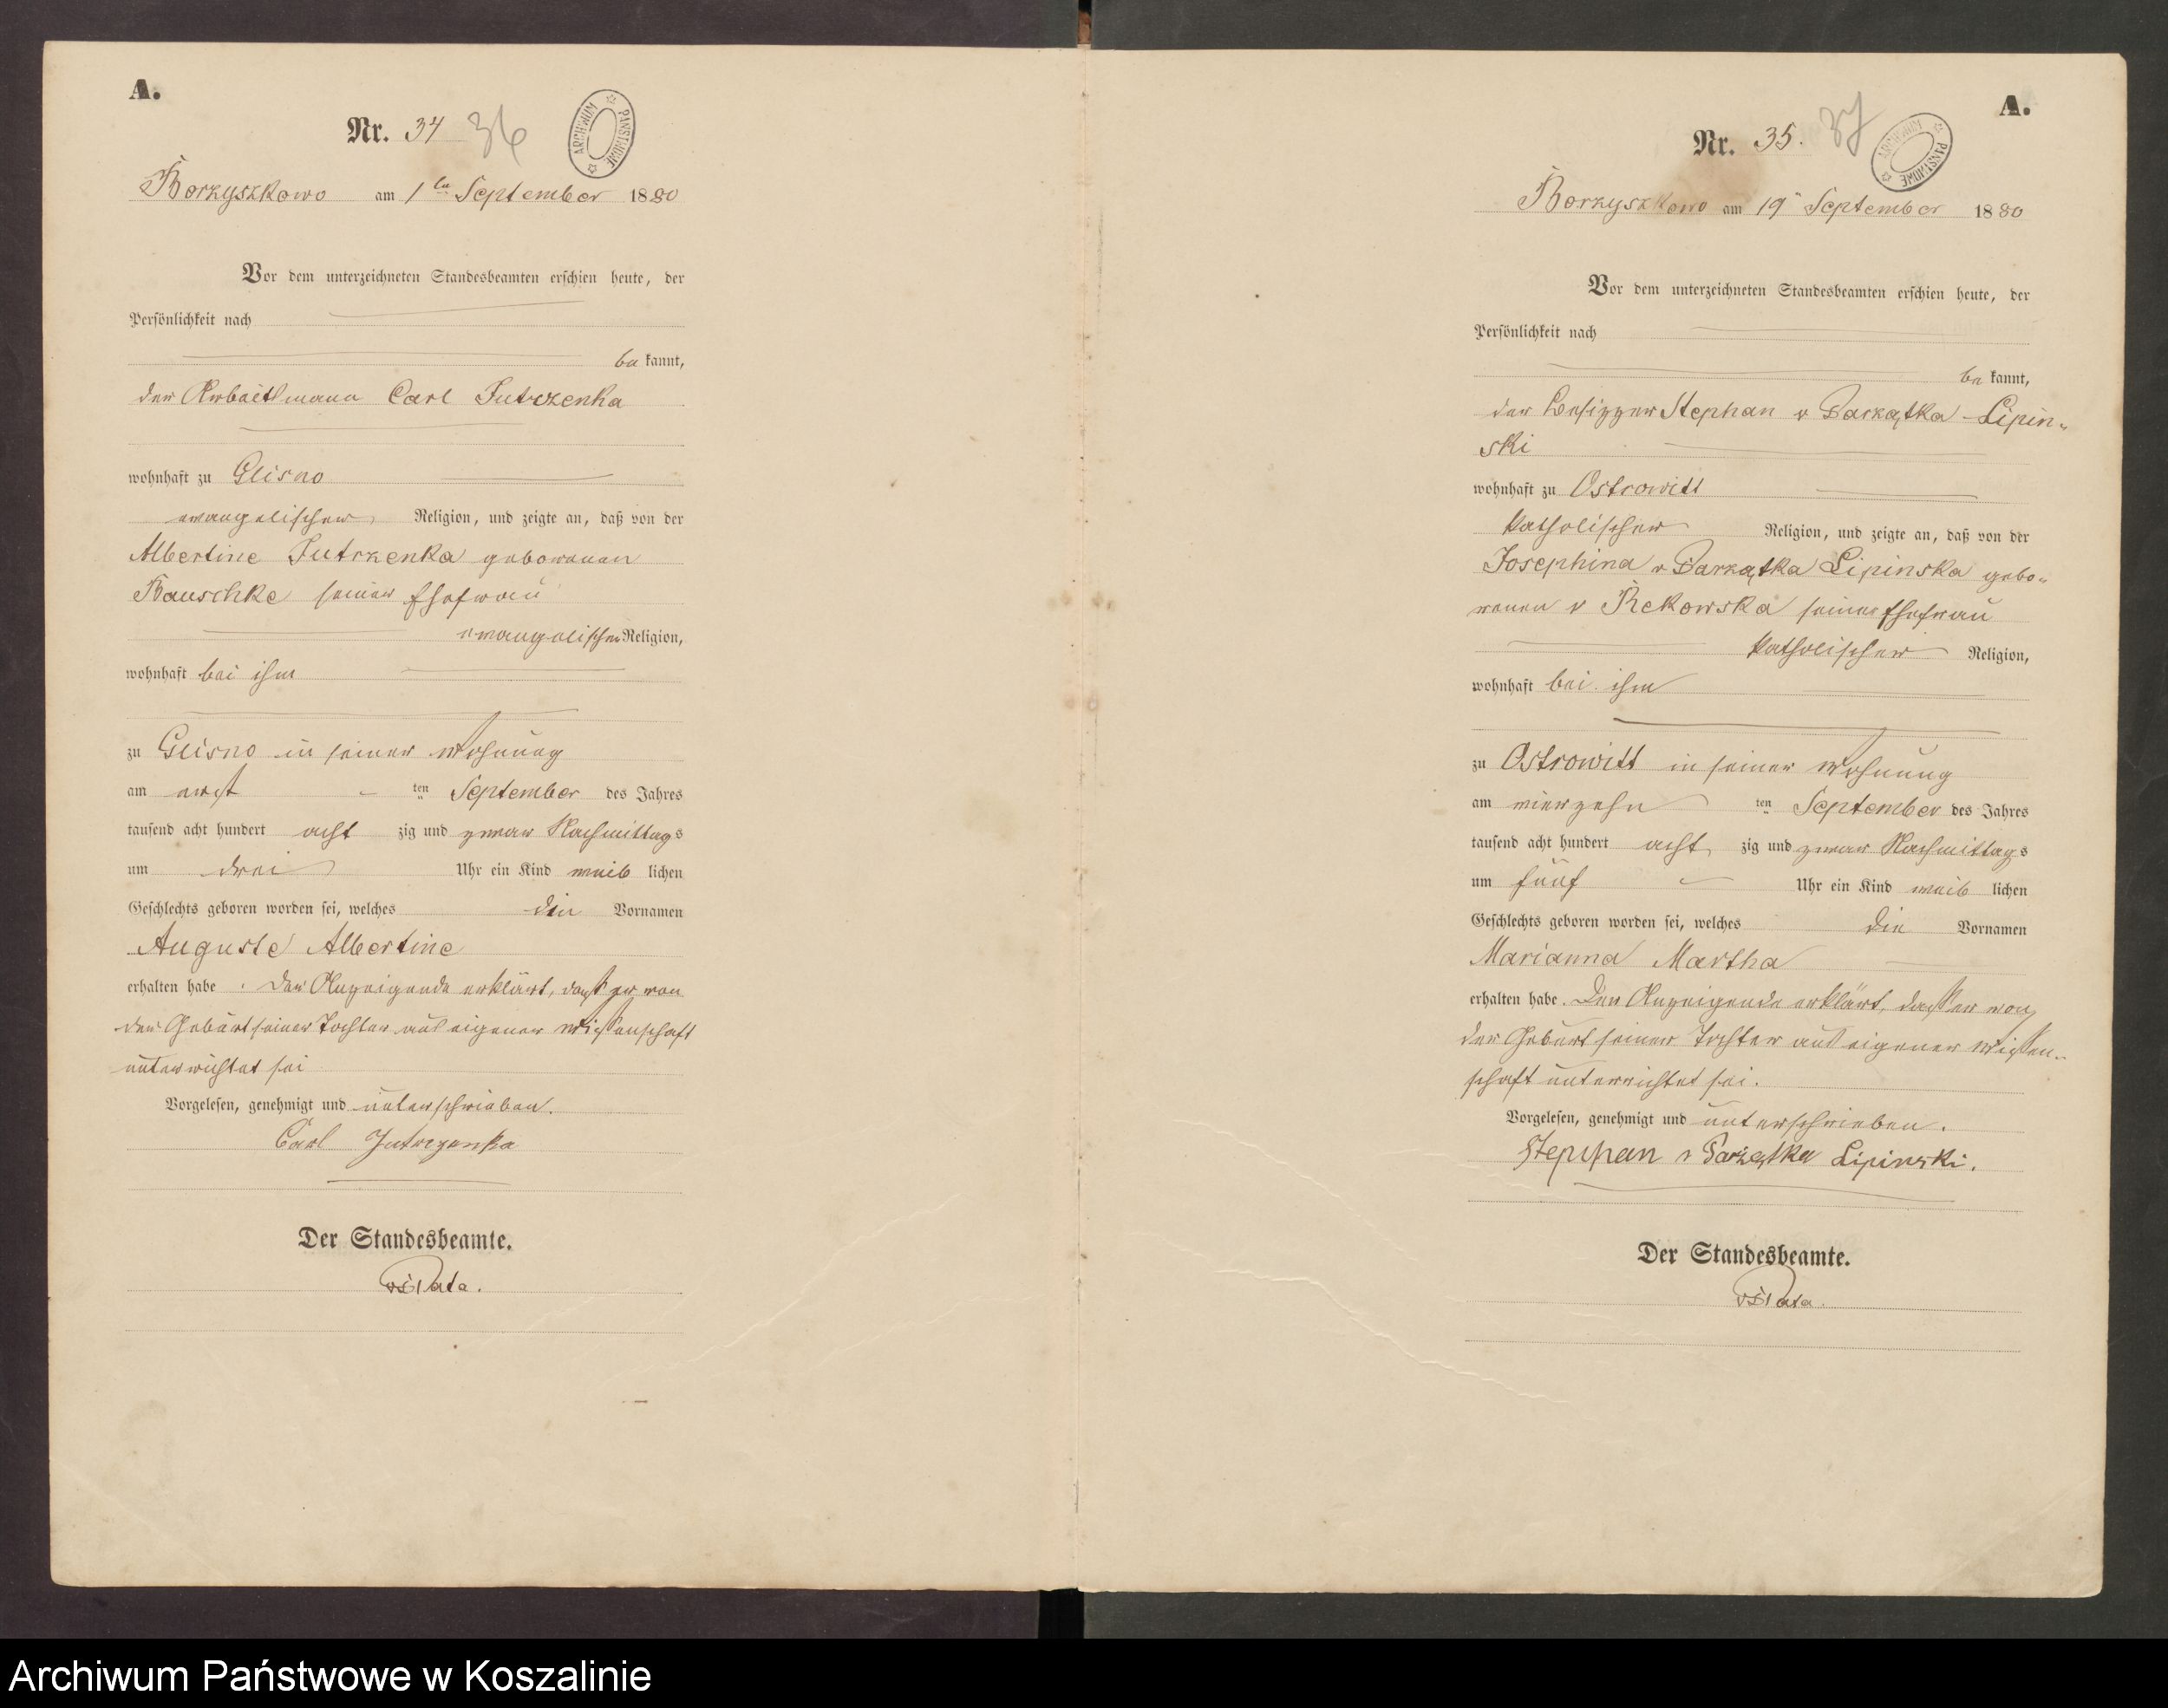 A.
Nr. 34
36
ARCHIWUM PAŃSTWOWE
Borzyszkowo am 1ten September 1880
Vor dem unterzeichneten Standesbeamten erschien heute, der
Persönlichkeit nach
be kannt,
der Arbeitsmann Carl Jutrzenka
wohnhaft zu Glisno
evangelischer Religion, und zeigte an, daß von der
Albertine Jutrzenka geborenen
Bauschke seiner Ehefrau
evangelischer Religion,
wohnhaft bei ihm
zu Glisno in seiner Wohnung
am erst ten September des Jahres
tausend acht hundert acht zig und zwar Nachmittags
um drei Uhr ein Kind weib lichen
Geschlechts geboren worden sei, welches die Vornamen
Auguste Albertine
erhalten habe. Der Anzeigende erklärt, daß er von
der Geburt seiner Tochter aus eigener Wissenschaft
unterrichtet sei
Vorgelesen, genehmigt und unterschrieben.
Carl Jutrzenka
Der Standesbeamte.
A.
Nr. 35.
37
ARCHIWUM PAŃSTWOWE
Borzyszkowo am 19 September 1880
Vor dem unterzeichneten Standesbeamten erschien heute, der
Persönlichkeit nach
be kannt,
der Besitzer Stephan v Parzątka-Lipin-
ski
wohnhaft zu Ostrowitt
katholischer Religion, und zeigte an, daß von der
Josephina v Parzątka Lipinska gebo-
renen v Rekowska seiner Ehefrau
katholischer Religion,
wohnhaft bei ihm
zu Ostrowitt in seiner Wohnung
am vierzehn ten September des Jahres
tausend acht hundert acht zig und zwar Nachmittags
um fünf Uhr ein Kind weib lichen
Geschlechts geboren worden sei, welches die Vornamen
Marianna Martha
erhalten habe. Der Anzeigende erklärt, daß er von
der Geburt seiner Tochter aus eigener Wissen-
schaft unterrichtet sei.
Vorgelesen, genehmigt und unterschrieben.
Stephan v Parzątka Lipinski.
Der Standesbeamte.
Archiwum Państwowe w Koszalinie